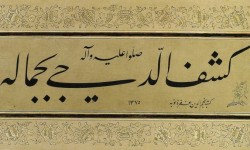 صلوا علیه وآله
کشف الدجی بجماله
۱۳۷۱